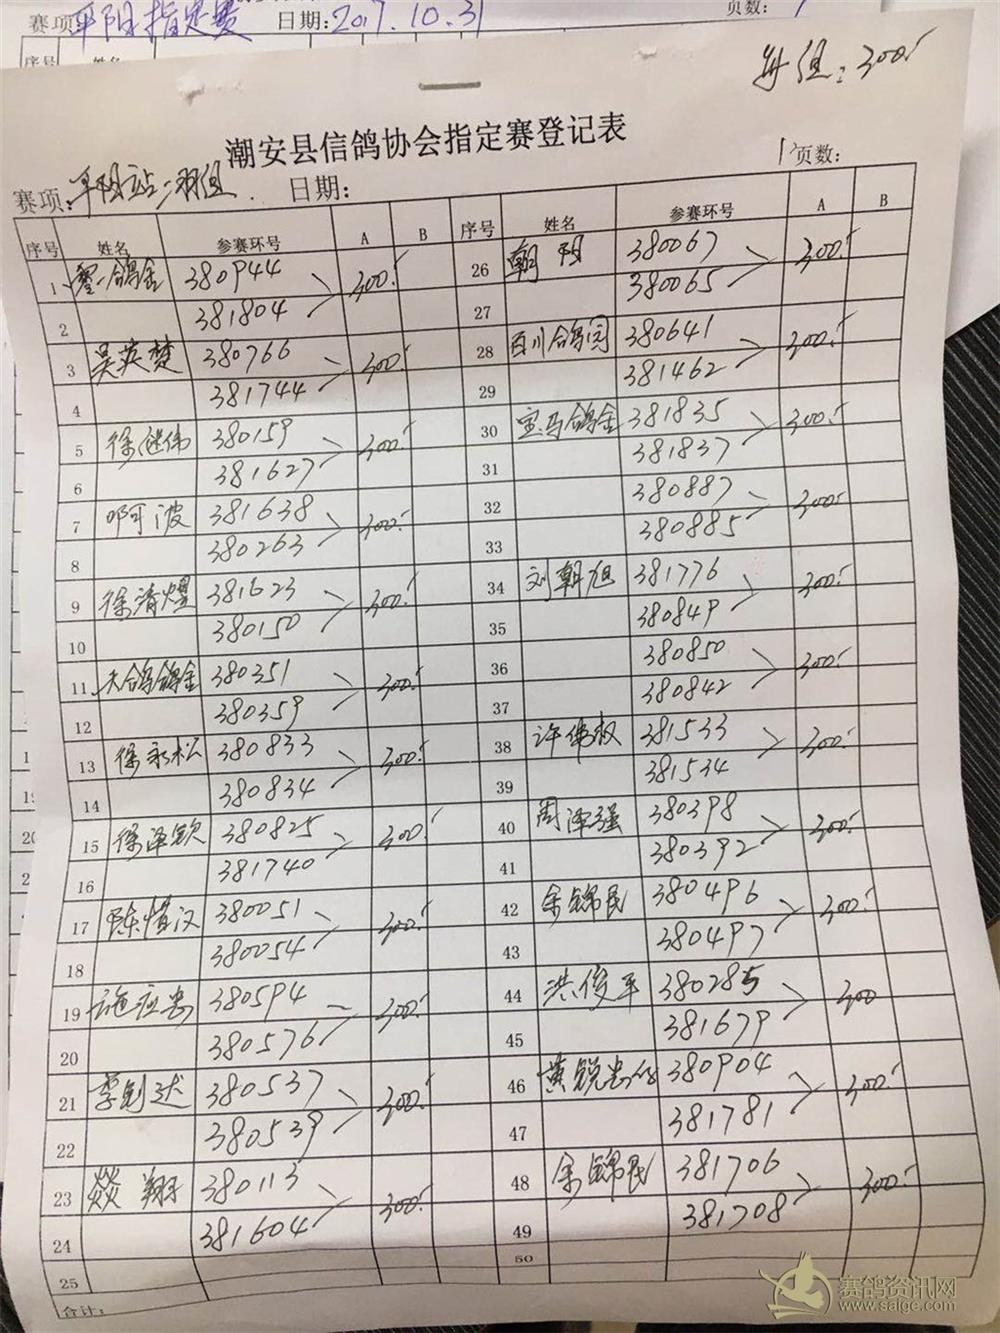 赛项:平阳指定赛 日期:2017.10.31 页数:
序号 姓名
每组:300.
潮安县信鸽协会指定赛登记表
赛项:平阳站二羽组. 日期: 页数:
序号 姓名 参赛环号 A B
1 鸽舍 380944 300.
2 381804
3 吴英楚 380766 300.
4 381744
5 徐继伟 380159 300.
6 381627
7 啊波 381638 300.
8 380263
9 徐清煌 381623 300.
10 380150
11 天鸽鸽舍 380351 300.
12 380359
13 徐永松 380833 300.
14 380834
15 徐泽钦 380825 300.
16 381740
17 陈惜汉 380051 300.
18 380054
19 施应 380594 300.
20 380576
21 李创达 380537 300.
22 380539
23 燚翔 380113 300.
24 381604
25
合计:
序号 姓名 参赛环号 A B
26 朝阳 380067 300.
27 380065
28 百川鸽园 380641 300.
29 381462
30 宝马鸽舍 381835 300.
31 381837
32 380887 300.
33 380885
34 刘朝旭 381776 300.
35 380849
36 380850 300.
37 380842
38 许伟权 381533 300.
39 381534
40 周泽强 380398 300.
41 380392
42 余锦民 380496 300.
43 380497
44 洪俊平 380285 300
45 381679
46 黄锐 380904 300.
47 381781
48 余锦民 381706 300.
49 381708
50
赛鸽资讯网
www.saige.com